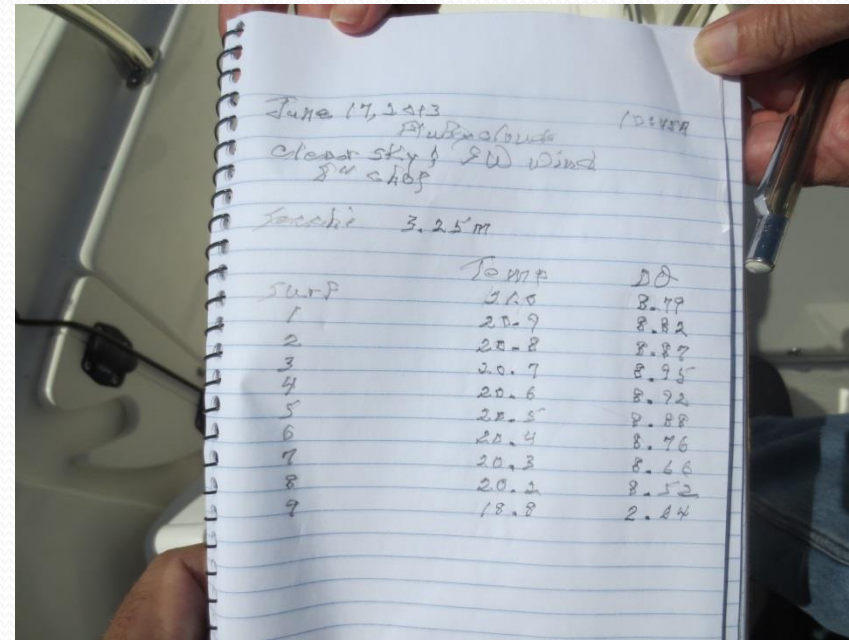 June 17, 2013 10:45A
clouds
Clear sky, SW wind
8" chop
Secchi 3.25m
Temp DO
Surf 21.0 8.79
1 20.9 8.82
2 20.8 8.87
3 20.7 8.95
4 20.6 8.92
5 20.5 8.88
6 20.4 8.76
7 20.3 8.66
8 20.2 8.52
9 18.8